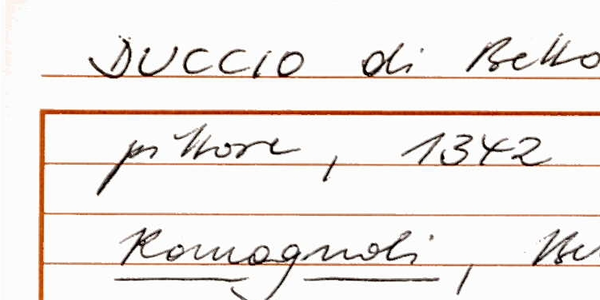 DUCCIO di Bello
pittore, 1342
Romagnoli,